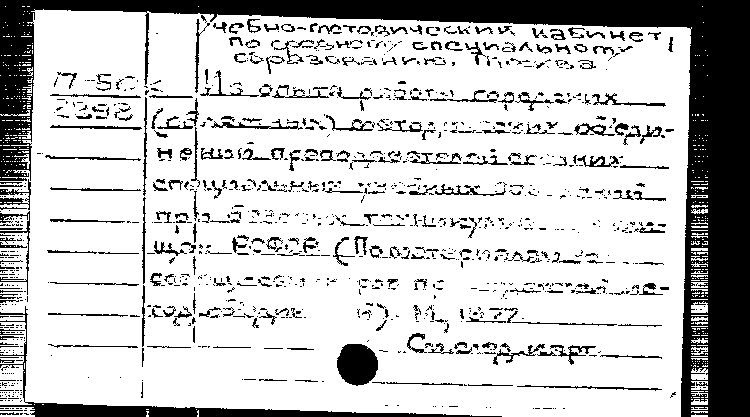 Учебно-методический кабинет
по среднему специальному
образованию. Москва.
П-50 Из опыта работы городских
2898 (областных) методических объеди-
нений преподавателей средних
специальных учебных заведений
при базовых техникумах
щах РСФСР (По материалам
совещ
тод. объедин й). М., 1977.
См. след. карт.